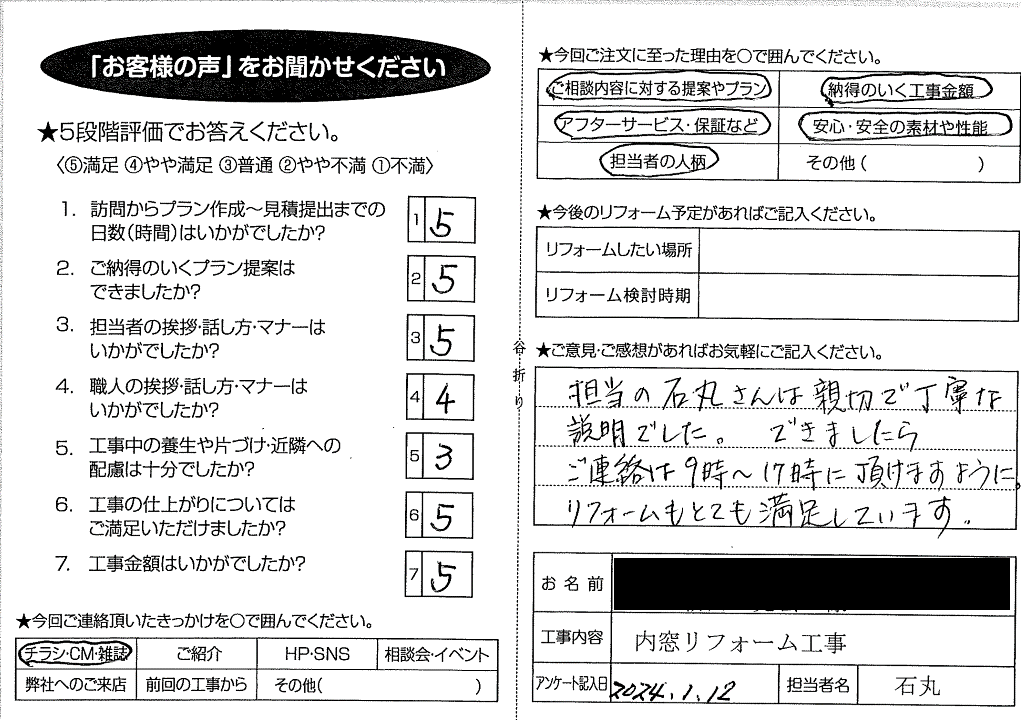 「お客様の声」をお聞かせください
★5段階評価でお答えください。
〈⑤満足 ④やや満足 ③普通 ②やや不満 ①不満〉
1. 訪問からプラン作成～見積提出までの
日数(時間)はいかがでしたか?
1 5
2. ご納得のいくプラン提案は
できましたか?
2 5
3. 担当者の挨拶・話し方・マナーは
いかがでしたか?
3 5
4. 職人の挨拶・話し方・マナーは
いかがでしたか?
4 4
5. 工事中の養生や片づけ・近隣への
配慮は十分でしたか?
5 3
6. 工事の仕上がりについては
ご満足いただけましたか?
6 5
7. 工事金額はいかがでしたか?
7 5
★今回ご連絡頂いたきっかけを〇で囲んでください。
チラシ・CM・雑誌 ご紹介 HP・SNS 相談会・イベント
弊社へのご来店 前回の工事から その他( )
谷折り
★今回ご注文に至った理由を〇で囲んでください。
ご相談内容に対する提案やプラン 納得のいく工事金額
アフターサービス・保証など 安心・安全の素材や性能
担当者の人柄 その他( )
★今後のリフォーム予定があればご記入ください。
リフォームしたい場所
リフォーム検討時期
★ご意見・ご感想があればお気軽にご記入ください。
担当の石丸さんは親切で丁寧な
説明でした。 できましたら
ご連絡は9時～17時に頂けますように。
リフォームもとても満足しています。
お名前
工事内容 内窓リフォーム工事
アンケート記入日 2024.1.12 担当者名 石丸